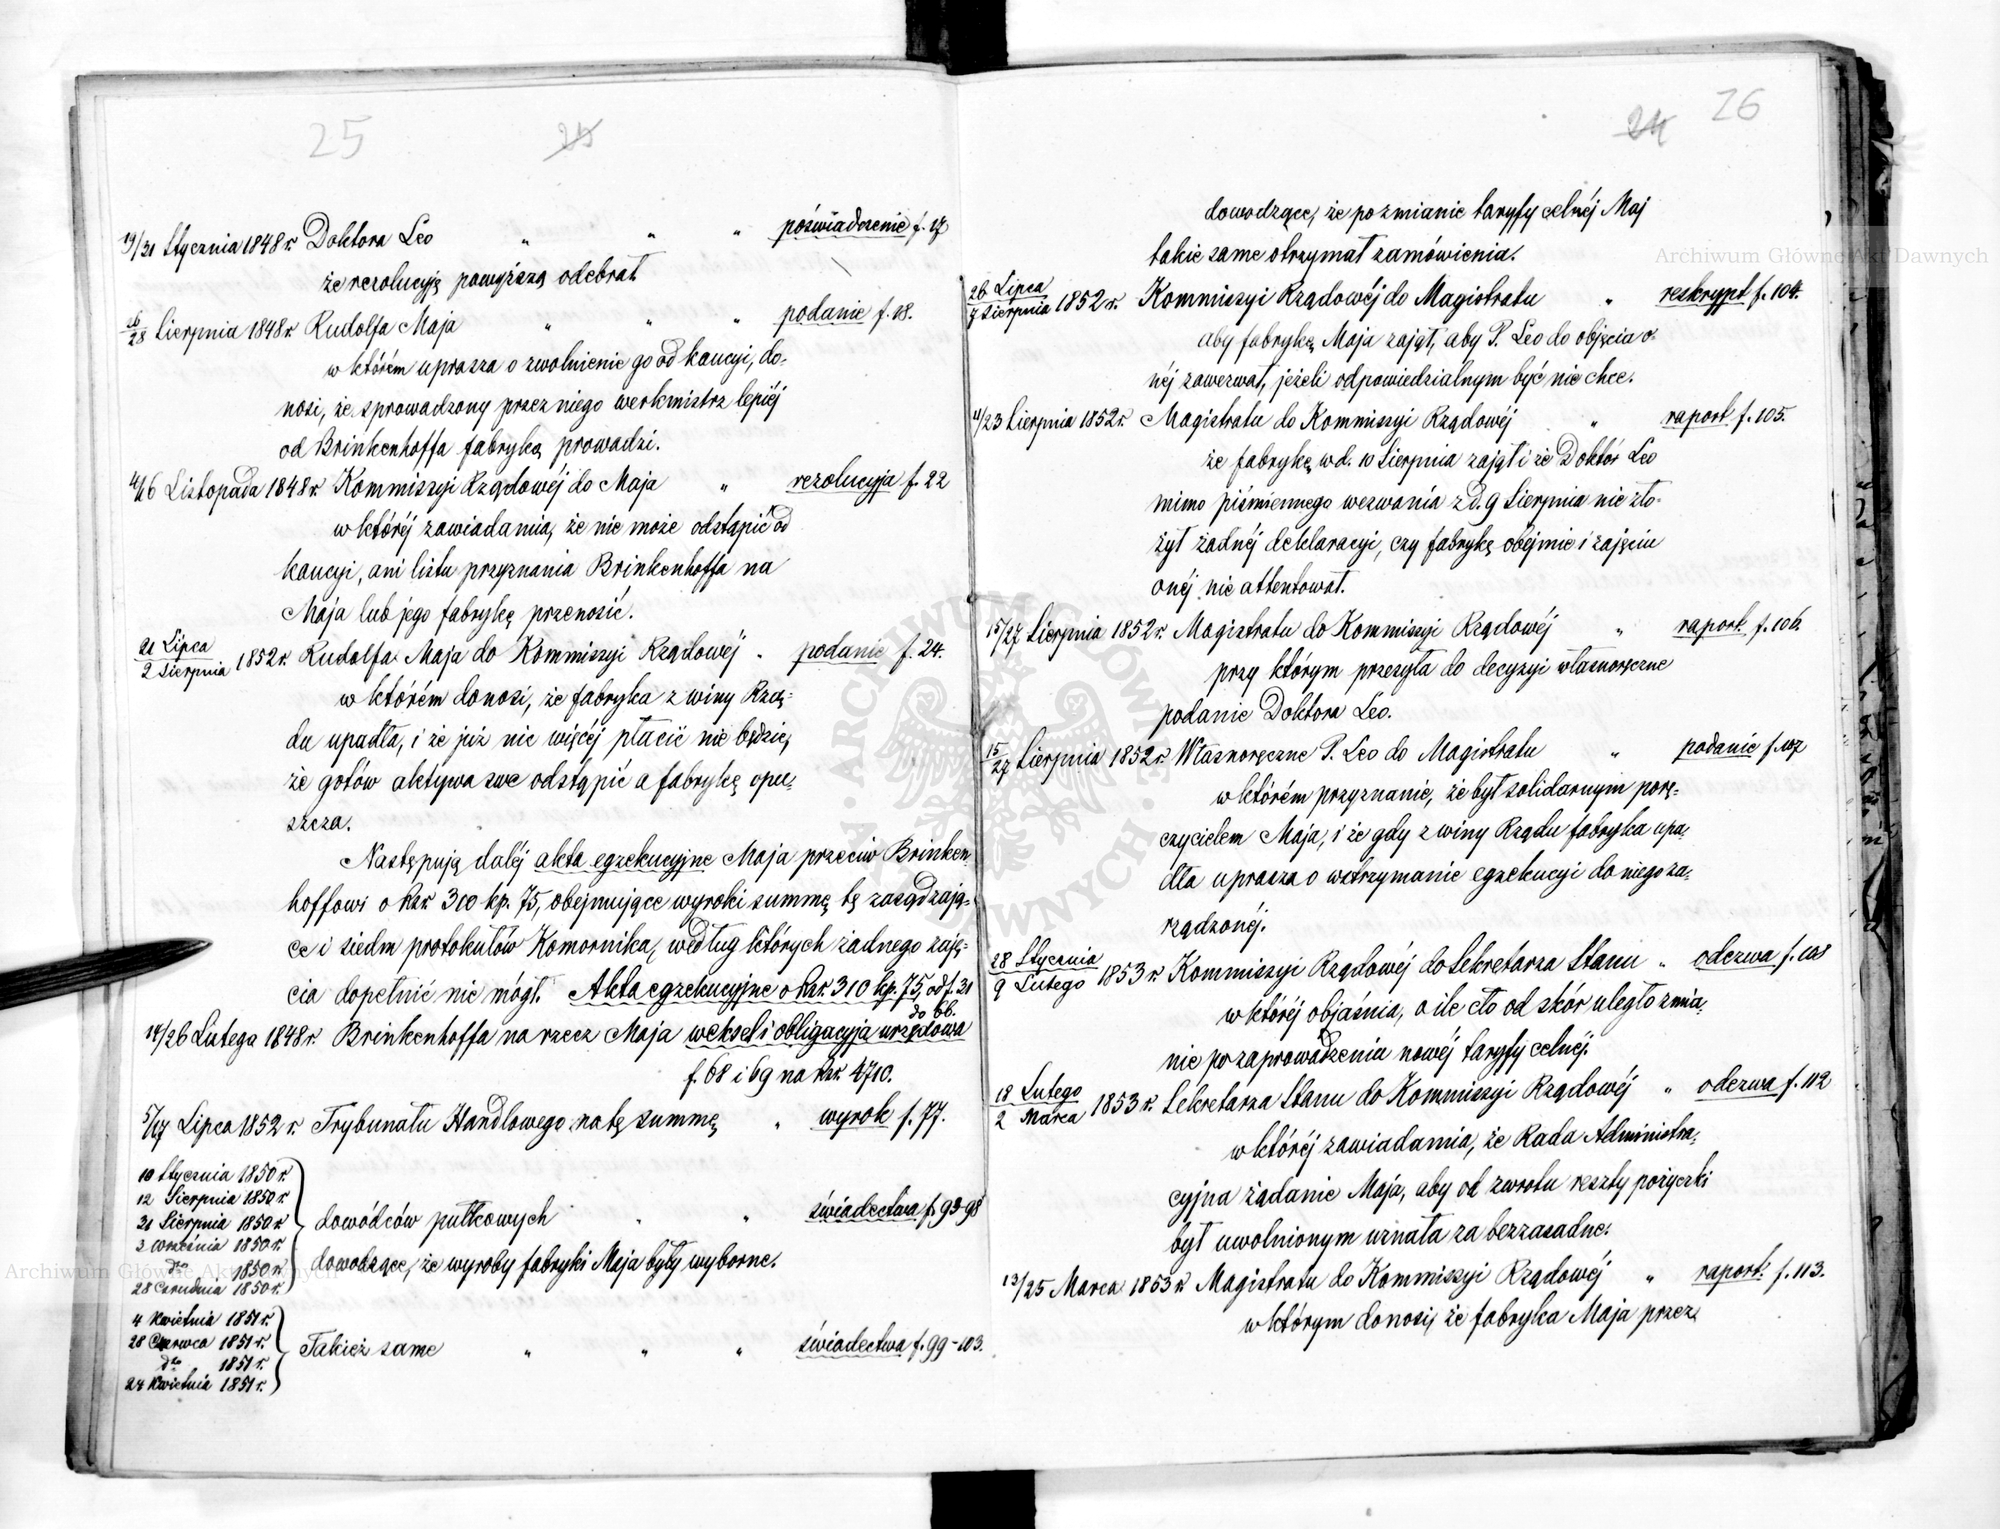 25
19/31 Stycznia 1848 r. Doktora Leo " " " poświadczenie f. 17
że rezolucyją powyższą odebrał.
16/28 Sierpnia 1848 r. Rudolfa Maja " " " podanie f. 18.
w którém uprasza o zwolnienie go od kaucyi, do-
nosi, że sprowadzony przez niego werkmistrz lepiéj
od Brinkenhoffa fabryką prowadzi.
4/16 Listopada 1848 r. Kommissyi Rządowéj do Maja " rezolucyja f. 22
w któréj zawiadamia, że nie może odstąpić od
kaucyi, ani listu przyznania Brinkenhoffa na
Maja lub jego fabrykę przenosić.
21 Lipca/2 Sierpnia 1852 r. Rudolfa Maja do Kommissyi Rządowéj " podanie f. 24.
w którém donosi, że fabryka z winy Rzą-
du upadła, i że już nic więcéj płacić nie będzie,
że gotów aktywa swe odstąpić a fabrykę opu-
szcza.
Następują daléj akta egzekucyjne Maja przeciw Brinken-
hoffowi o Rsr. 310 kp. 75, obejmujące wyroki summę tę zasądzają-
ce i siedm protokułów Komornika, według których żadnego zaję-
cia dopełnić nie mógł. Akta egzekucyjne o Rsr. 310 kp. 75, od f. 31
do 66.
14/26 Lutego 1848 r. Brinkenhoffa na rzecz Maja weksel i obligacyja urzędowa
f. 68 i 69 na Rsr. 4710.
5/17 Lipca 1852 r. Trybunału Handlowego na tę summę " wyrok f. 77.
10 Stycznia 1850 r.
12 Sierpnia 1850 r.
21 Sierpnia 1850 r. dowódców pułkowych " " świadectwa f. 93-98
2 Września 1850 r.
dto 1850 r. dowodzące, że wyroby fabryki Maja były wyborne.
28 Grudnia 1850 r.
4 Kwietnia 1851 r.
28 Czerwca 1851 r. Takież same " " " świadectwa f. 99-103.
dto 1851 r.
24 Kwietnia 1851 r.
24 26
dowodzące, że po zmianie taryfy celnéj Maj
takie same otrzymał zamówienia.
26 Lipca/7 Sierpnia 1852 r. Kommissyi Rządowéj do Magistratu " reskrypt f. 104.
aby fabrykę Maja zajął, aby P. Leo do objęcia o-
néj zawezwał, jeżeli odpowiedzialnym być nie chce.
11/23 Sierpnia 1852 r. Magistratu do Kommissyi Rządowéj " raport f. 105.
że fabrykę w d. 10 Sierpnia zajął i że Doktór Leo
mimo piśmiennego wezwania z d. 9 Sierpnia nie zło-
żył żadnéj deklaracyi, czy fabrykę obejmie i zajęciu
onéj nie attentował.
15/27 Sierpnia 1852 r. Magistratu do Kommissyi Rządowéj " raport f. 106.
przy którym przesyła do decyzyi własnoręczne
podanie Doktora Leo.
15/27 Sierpnia 1852 r. Własnoręczne P. Leo do Magistratu " podanie f. 107
w którém przyznanie, że był solidarnym porę-
czycielem Maja, i że gdy z winy Rządu fabryka upa-
dła uprasza o wstrzymanie egzekucyi do niego za-
rządzonéj.
28 Stycznia/9 Lutego 1853 r. Kommissyi Rządowéj do Sekretarza Stanu " odezwa f. 108
w któréj objaśnia, o ile cło od skór uległo zmia-
nie po zaprowadzeniu nowéj taryfy celnéj.
18 Lutego/2 Marca 1853 r. Sekretarza Stanu do Kommissyi Rządowéj " odezwa f. 112
w któréj zawiadamia, że Rada Administra-
cyjna żądanie Maja, aby od zwrotu reszty pożyczki
był uwolnionym uznała za bezzasadne.
13/25 Marca 1853 r. Magistratu do Kommissyi Rządowéj " raport f. 113.
w którym donosi, że fabryka Maja przez
Archiwum Główne Akt Dawnych
Archiwum Główne Akt Dawnych